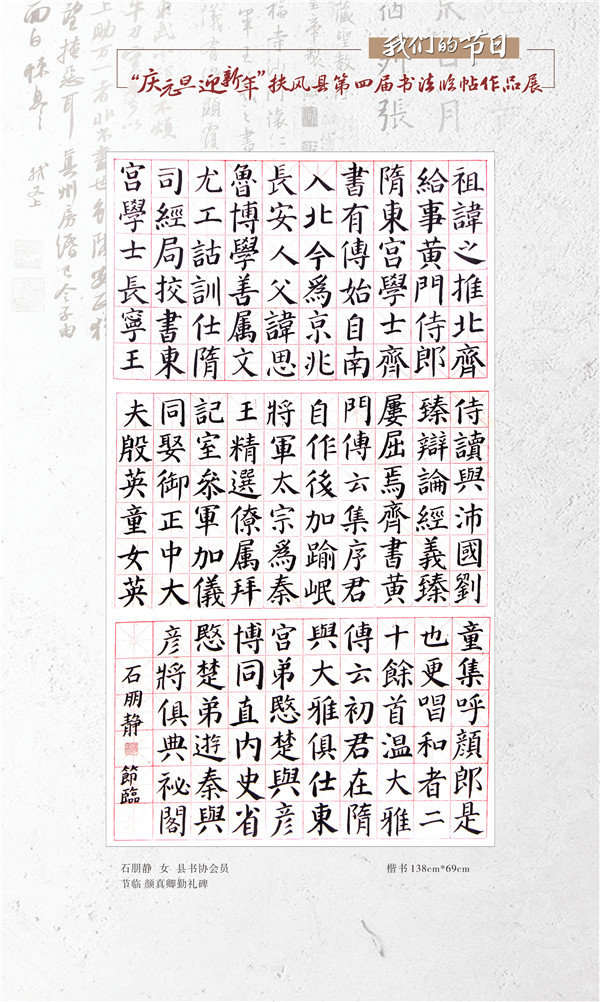 我们的节日
“庆元旦迎新年”扶风县第四届书法临帖作品展
祖諱之推北齊
給事黃門侍郎
隋東宮學士齊
書有傳始自南
入北今為京兆
長安人父諱思
魯博學善属文
尤工詁訓仕隋
司經局挍書東
宮學士長寧王
侍讀與沛國劉
臻辯論經義臻
屢屈焉齊書黃
門傳云集序君
自作後加踰岷
將軍太宗為秦
王精選僚属拜
記室叅軍加儀
同娶御正中大
夫殷英童女英
童集呼顏郎是
也更唱和者二
十餘首温大雅
傳云初君在隋
與大雅俱仕東
宮弟愍楚與彥
博同直内史省
愍楚弟遊秦與
彥將俱典祕閣
石朋静 節臨
石朋静 女 县书协会员
节临 颜真卿勤礼碑
楷书 138cm*69cm